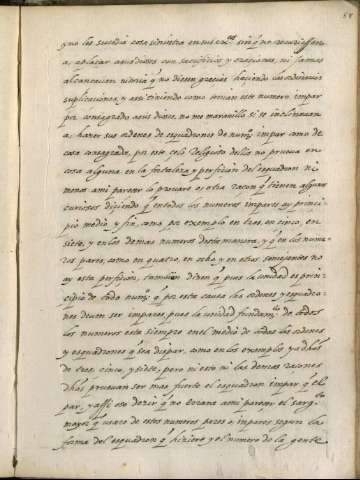 y no les sucedia cosa siniestra en sus que no recuriessen
a, aplacar a sus dioses con sacrificios y oraciones, ni jamas
alcançauan vitoria que no diesen gracias haziendo los
suplicaciones, y assi tiniendo como tenian este numero impar
por consagrado a sus dioses, no me marauillo si se inclinauan
a, hazer sus ordenes de esquadrones de numº impar como de
cosa consagrada, por este celo, no prueua en
cosa alguna en la fortaleza y perficion del esquadron ni
menos a mi parecer lo prouara otra razon que tienen algunos
curiosos diziendo que en todos los numeros impares ay princi-
pio medio, y fin, como por exemplo en tres, en cinco, en
siete, y en los demas numeros desta manera, y que en los nume-
ros pares, como en quatro, en ocho, y en otros semejantes no
ay esta perfiçion, tambien dizen que pues la unidad es prin-
cipio de todo numº que por esta causa las ordenes y esquadro-
nes deuen ser impares, pues la unidad fundamto de todos
los numeros esta siempre en el medio de todas las ordenes
y esquadrones que sea dispar, como en los exemplos ya dhos
de tres, cinco, y siete, pero ni esto ni las demas razones
dhas prueuan ser mas fuerte el esquadron impar que el
par, y assi oso dezir que no errara a mi parecer el sargto
mayor que usare de estos numeros pares o impares segun la
forma del esquadron que hiziere y el numero de la gente